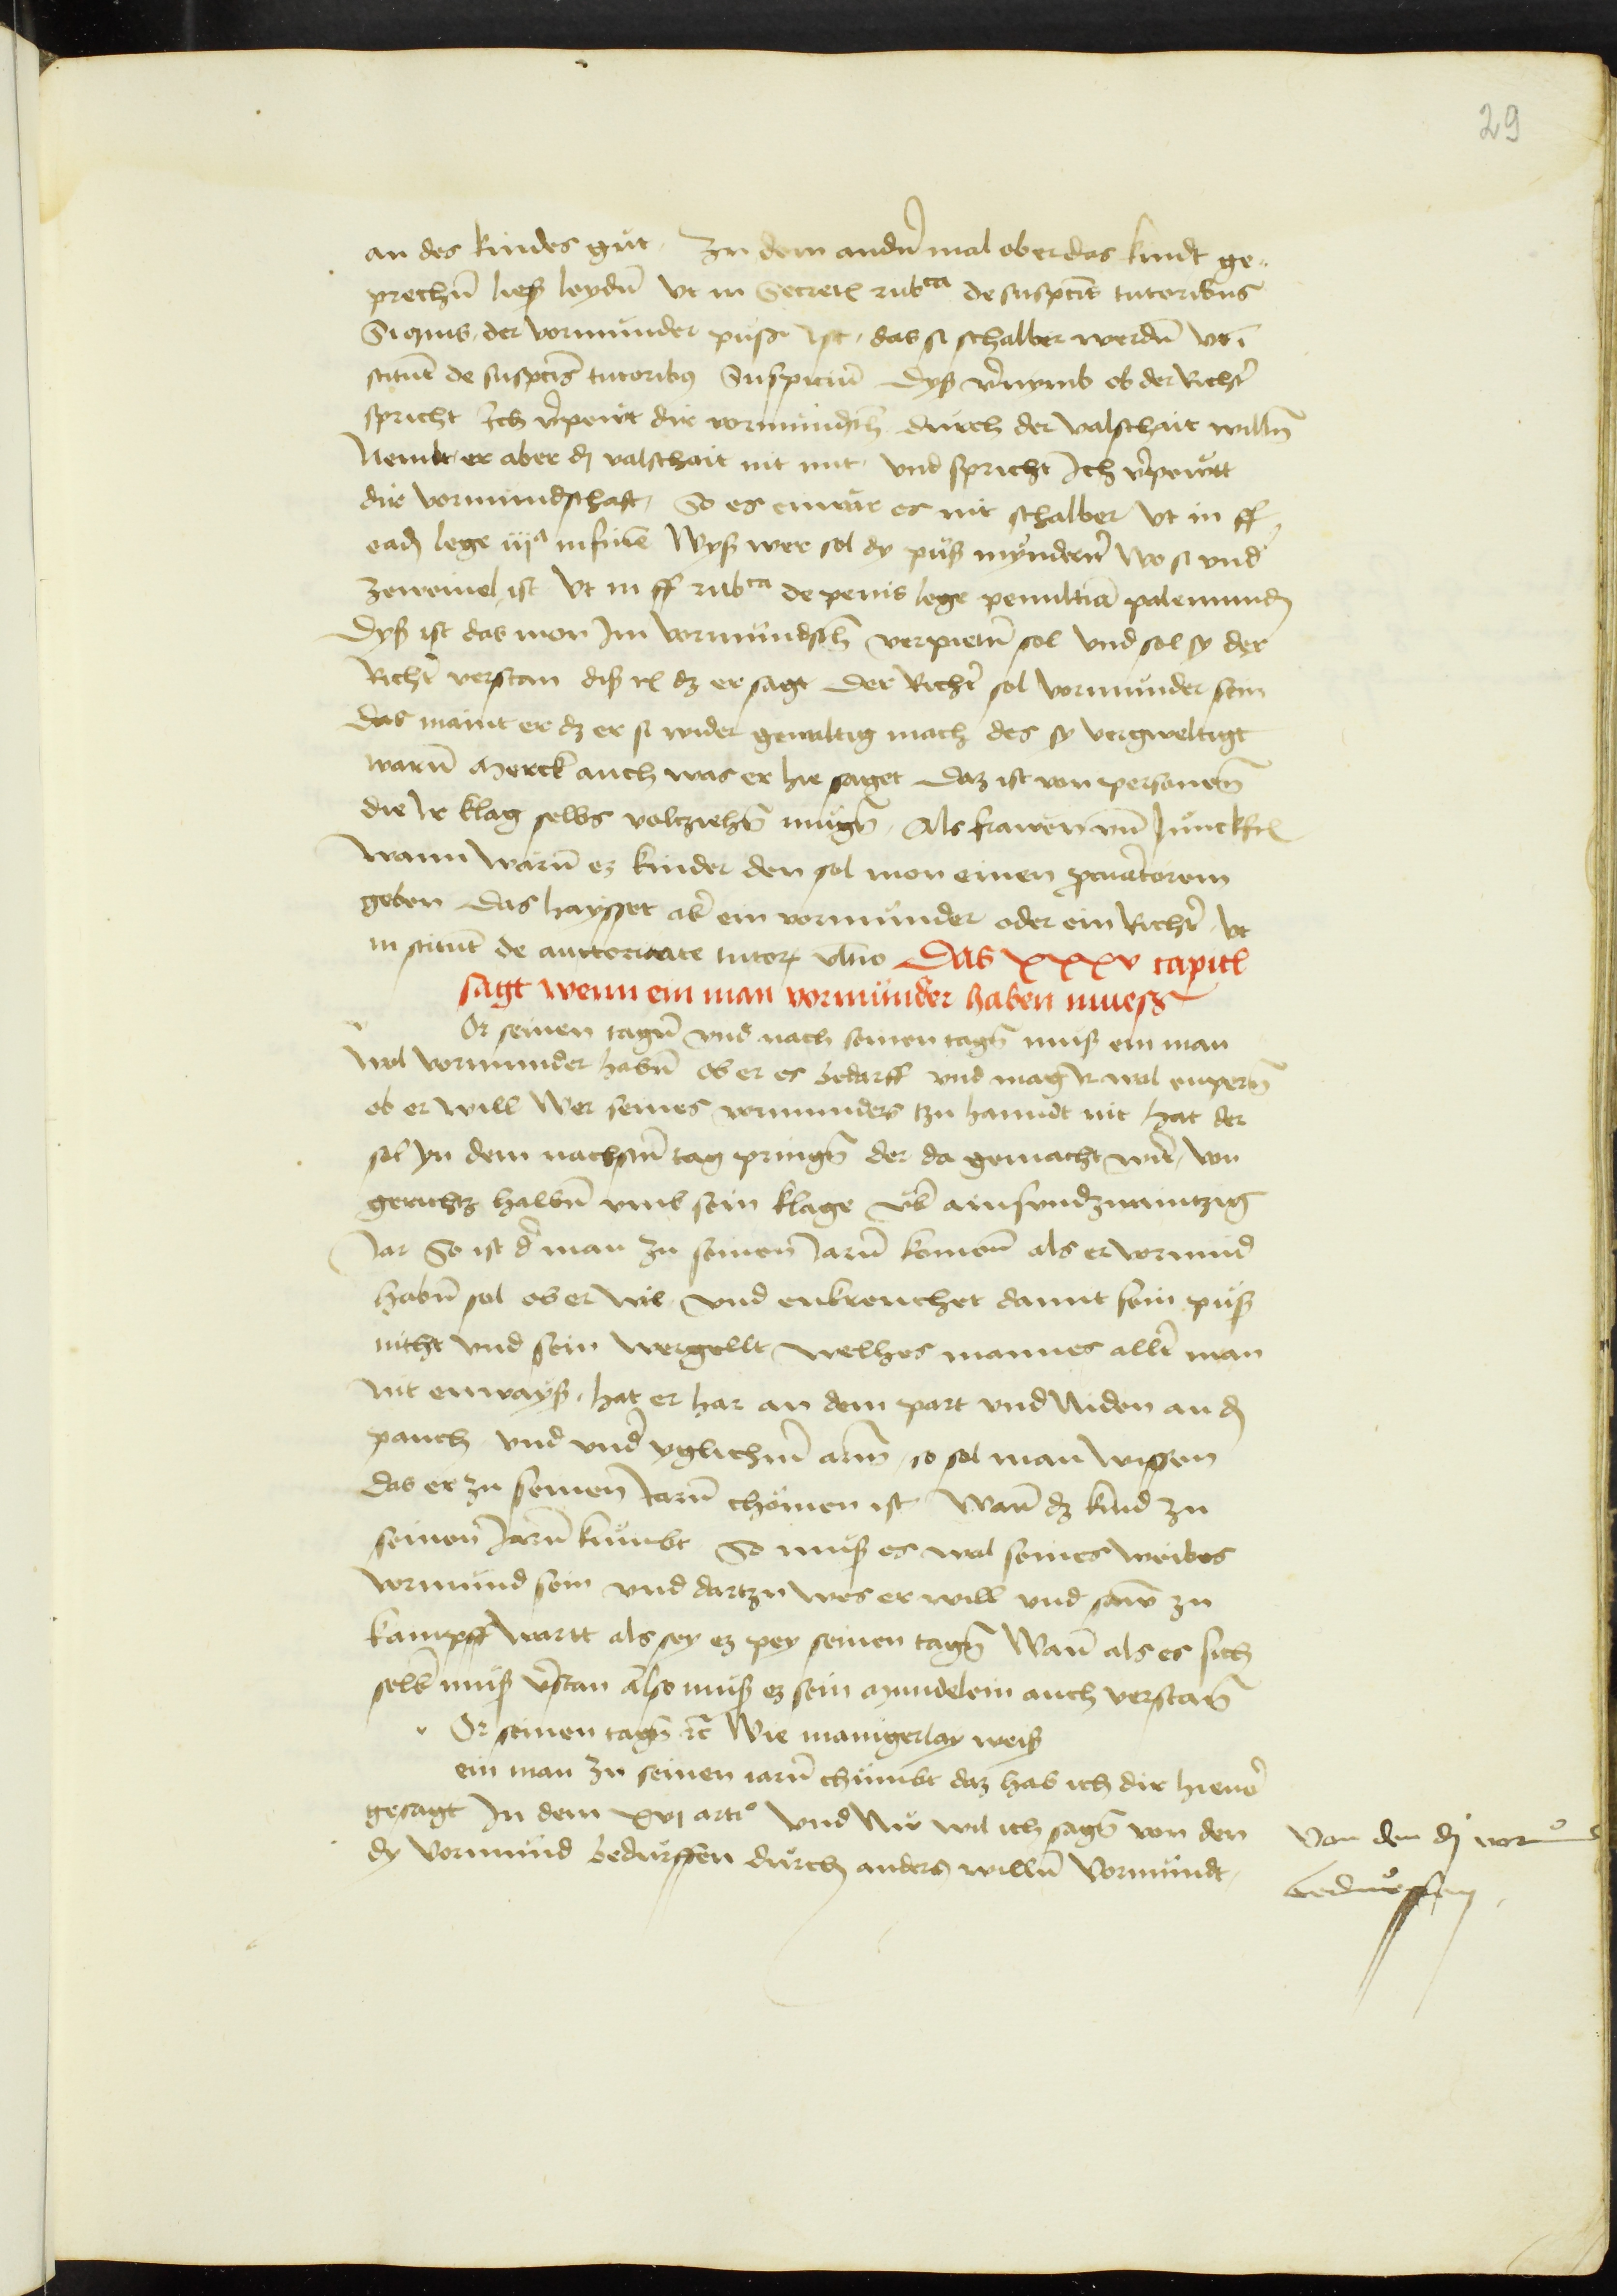 29
an des kindes gůt. Zu dem andn̄ mal ob er das kindt ge-
prechn̄ ließ leydn̄ Vt in Secretꝭ rubca de susptis tutoribus
Siquis. der vormunder půß ist. das si schalber werdn̄ vt i
stitut̄ de susptis tutoribꝫ Suspiciū Dyß v̄nymb ob der Richt̄
spricht Ich v̄peut dir vormundsch̄ durch der valschait willn̄
Nemdt er aber dȳ valschait nit mit. vnd spricht Ich v̄peutt
dir vormundschaft. So es entut es nit schalber Vt in ff
eadē lege iija in fine Wyß wer sol dy půß myndern̄ wo si vnd
zeweinel ist Vt in ff rubca de penis lege penultia palemundē
Dyß ist das mon Im vormundsch̄ verpietn̄ sol vnd sol sy der
Richt̄ verstan diß rꝭ dz er sagt Der Richt̄ sol vormunder sein
das maint er dz er si wider gewaltig mach des sy vergweltigt
warn̄ Merck auch was er hie saget Daz ist von personen̄
die Ir klag selbs volcziehn̄ mügn̄. Als frawen vn̄ Junckfrꝭ
wann wärn̄ ez kinder den sol mon einen p̄curatorem
geben Das haysset ab̄ ein vormunder oder ein Richt̄ Vt
in stitut̄ de auctoritate tutorꝝ vltīo Das xxxv capitl
sagt wenn ein man vormunder haben muess
v Or seinen tagn̄ vnd nach seinen tagn̄ muß ein man
wol vormunder habn̄ Ob er es bedarff vnd mag Ir wol enpern̄
ob er will Wer seines vormunders tzu hanndt nit hat der
sol In dem nachstn̄ tag pringn̄ der da gemacht wirt, von
gerichtz halbn̄ vmb sein klage vb̄ ainsvndzwaintzig
Jar So ist d̄ man zu seinen Jarn̄ komen̄ als er vormūd
habn̄ sol ob er wil. vnd enkrenchet damit sein půß
nicht vnd sein wergellt, welhes mannes allt̄ man
nit enwayß. hat er har an dem part vnd Niden an dē
pauch vnd vnd̄ yglichm̄ arm̄, so sol man wissen
das er zu seinen Jarn̄ chömen ist Wan̄ dz kind zu
seinen Jarn̄ kumbt So muß es wol seines weibes
vormund sein vnd dartzu wes er will vnd sam zu
kampff wartt als sey ez pey seinen tagn̄ Wan̄ als es sich
selb̄ muß v̄stan Also muß ez sein Mundelein auch verstan̄
v Or seinen tagn̄ rc̄ Wie manigerlay weiß
ein man zu seinen iarn̄ chumbt daz hab ich dir hieuor̄
gesagt In dem xvi arti° Vnd Nu wil ich sagn̄ von den
dy Vormund bedurffen durch anders willn̄ Vormundt
Von den dȳ vormūd
bedurffen